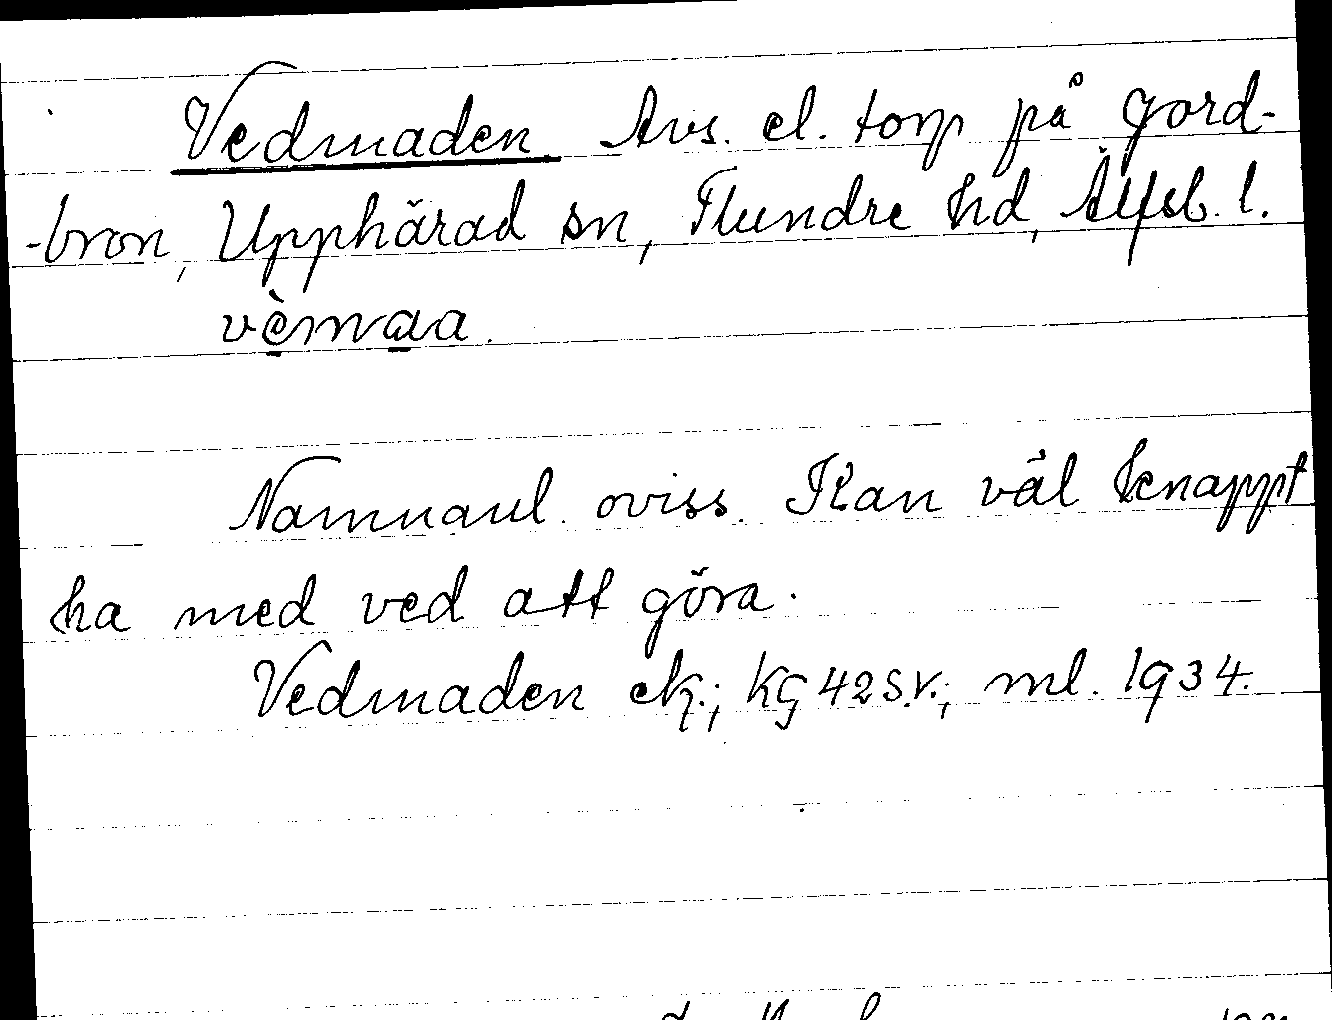 Vedmaden. Avs. el. torp på Jord-
-bron, Upphärad sn, Flundre hd, Älfsb. l.
vèmaa.
Namnaul. oviss. Kan väl knappt
ha med ved att göra.
Vedmaden ek.; KG 42 S.V.; ml. 1934.